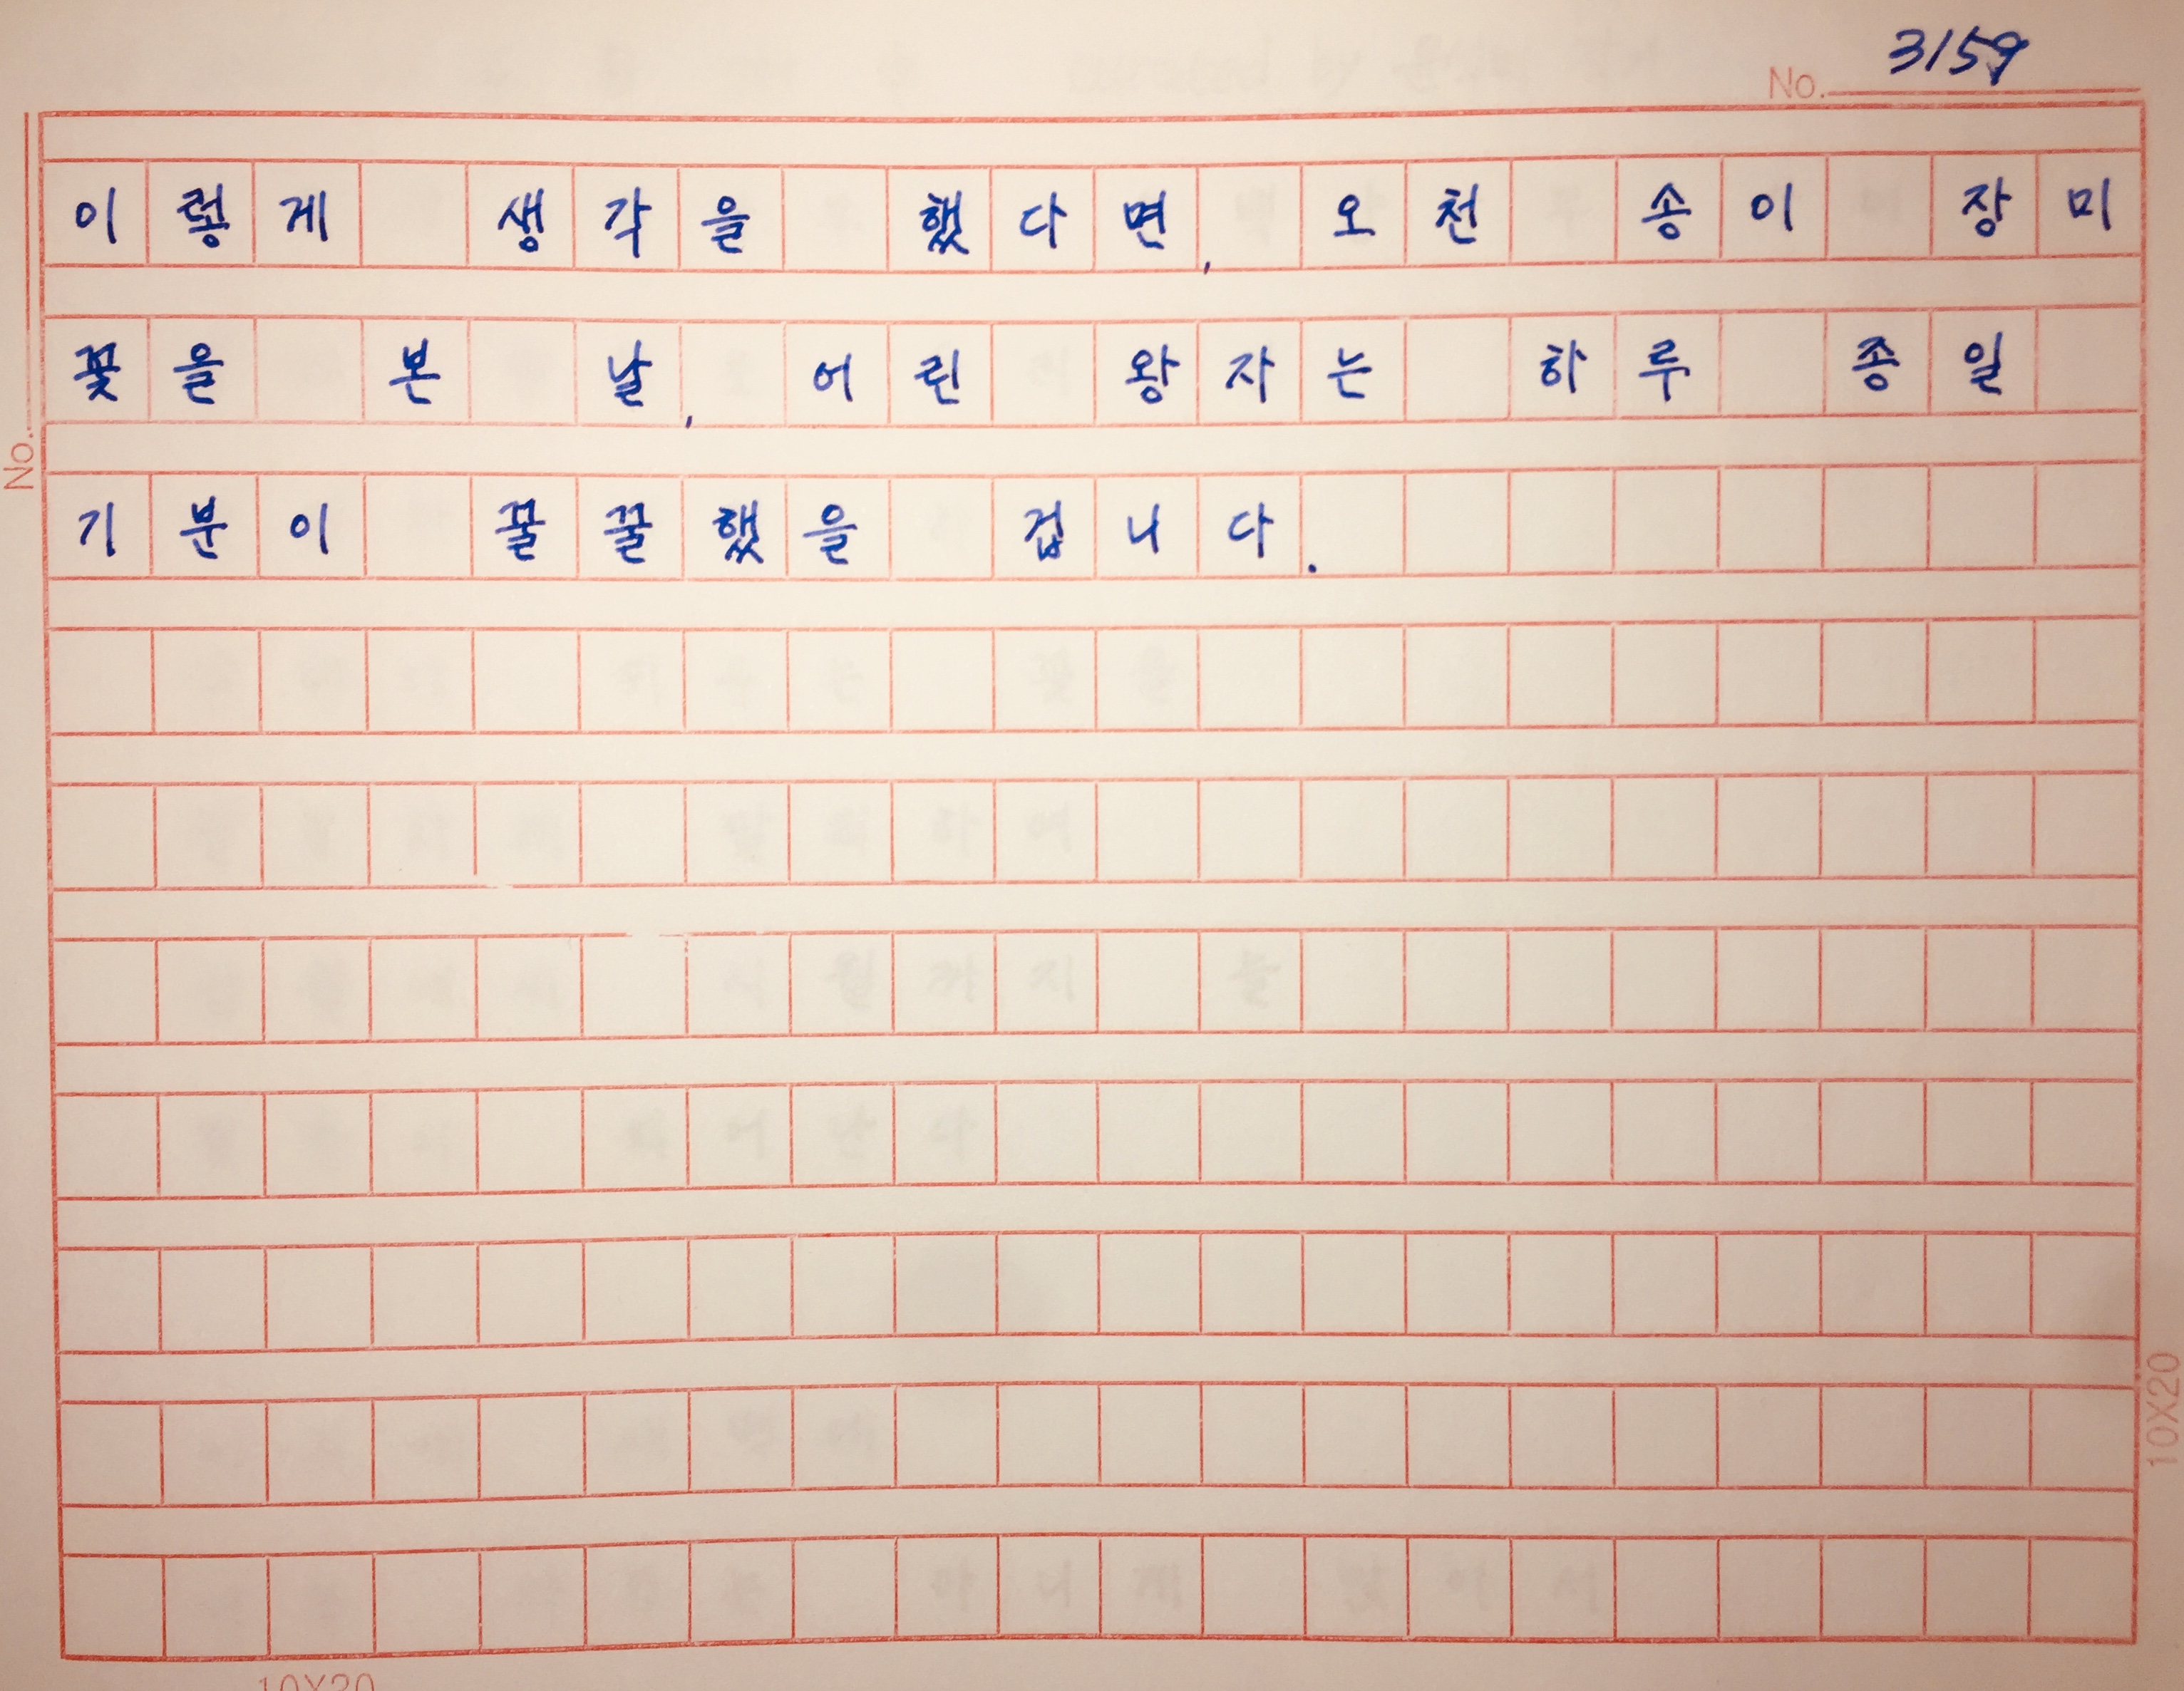 No. 3159
이렇게 생각을 했다면, 오천 송이 장미
꽃을 본 날, 어린 왕자는 하루 종일
No.
기분이 꿀꿀했을 겁니다.
10X20
10X20